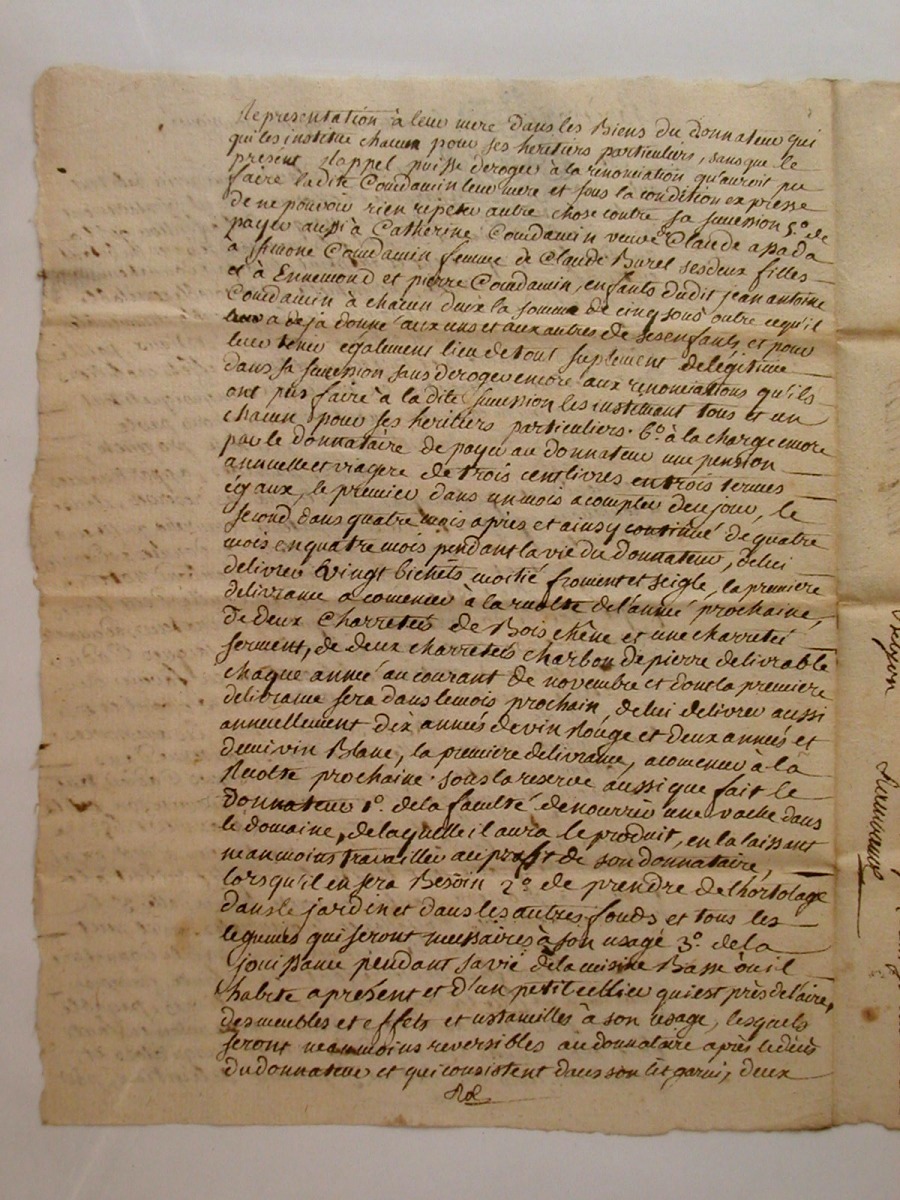 Representation à leur mere Dans les Biens du donnateur qui
qui les institue chacun pour ses heritiers particuliers, sans que le
present rappel puisse deroger à la renonciation qu'auroit pu
faire ladite Courdamin leur mere et sous la condition expresse
de ne pouvoir rien repeter autre chose contre sa succession 5.º de
payer aussi à Catherine Courdamin veuve Claude apada
a Simone Courdamin femme de Claude Burel ses deux filles
et à Ennemond et pierre Courdamin, enfants dudit jean antoine
Courdamin à chacun d'eux la somme de cinq sous outre ce qu'il
a deja donné aux uns et aux autres de ses enfants et pour
leur tenir egalement lieu de tout suplement de légitime
dans sa succession sans deroger encore aux renonciations qu'ils
ont pus faire à la dite succession les instituant tous et un
chacun pour ses heritiers particuliers. 6.º à la charge encore
par le donnataire de payer au donnateur une pension
annuelle et viagere de trois cent livres en trois termes
egaux, le premier dans un mois a compter de ce jour, le
second dans quatre mois après et ainsy continué de quatre
mois en quatre mois pendant la vie du donnateur, de lui
delivrer vingt bichets moitié froment et seigle, la premiere
delivrance a comencer à la recolte de l'anné prochaine,
de deux Charretés de Bois chêne et une charreteé
serment, de deux charretés charbon de pierre delivrable
chaque anneé au courant de novembre et dont la premiere
delivrance sera dans le mois prochain, de lui delivrer aussi
annuellement dix années de vin Rouge et deux années et
demi vin Blanc, la premiere delivrance, a comencer à la
Recolte prochaine. sous la reserve aussi que fait le
Donnateur 1.º de la faculté de nourrir une vache dans
le domaine, de laquelle il aura le produit, en la laissant
neanmoins travailler au profit de son donnataire,
lorsqu'il en sera Besoin 2.º de prendre de l'hortolage
dans le jardin et dans les autres fonds et tous les
legumes qui seront necessaires à son usage 3.º de la
jouissance pendant sa vie de la cuisine Basse où il
habite apresent et d'un petit cellier qui est près de l'aire,
des meubles et effets et ustancilles à son usage, lesquels
seront neanmoins reversibles au donnataire après le décès
du donnateur et qui consistent dans son lit garni, deux